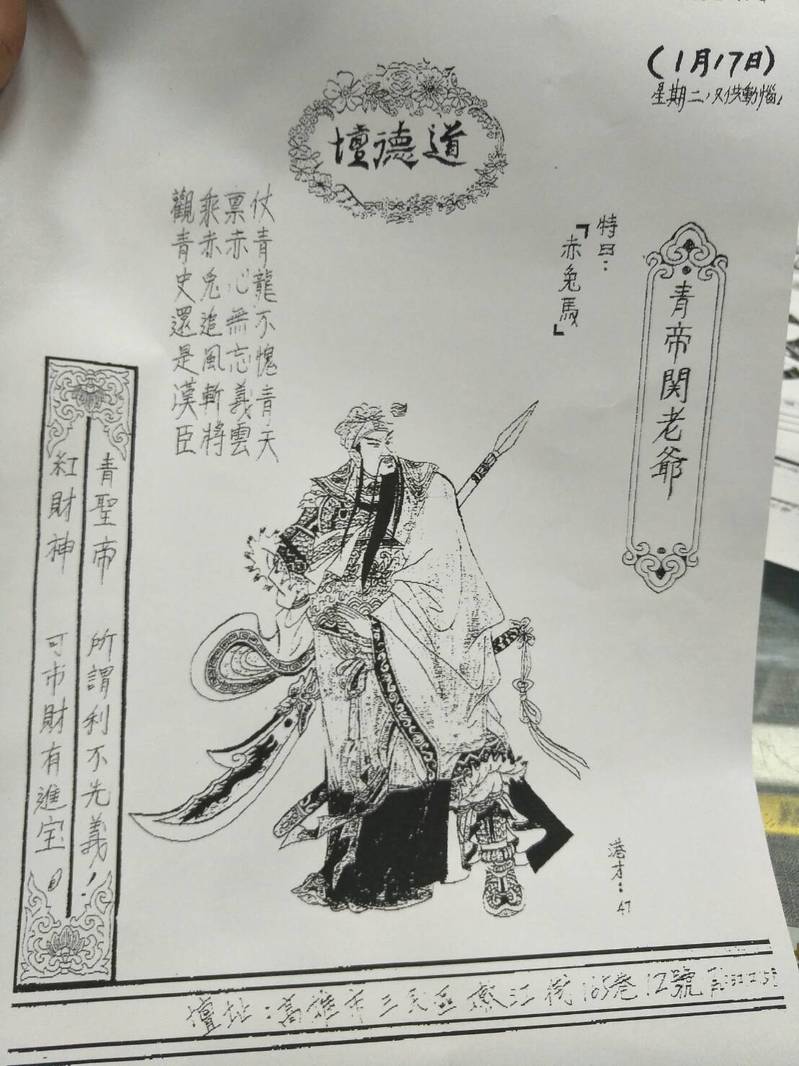 (1月17日)
星期二,只供動惱,
道德壇
青帝関老爺
特曰:
「赤兔馬」
仗青龍不愧青天
禀赤心無忘義雲
乘赤兔追風斬將
觀青史還是漢臣
青聖帝 所謂利不先義!
紅財神 可市財有進宝。
港才:47
壇址:高雄市三民區 江街165巷12號